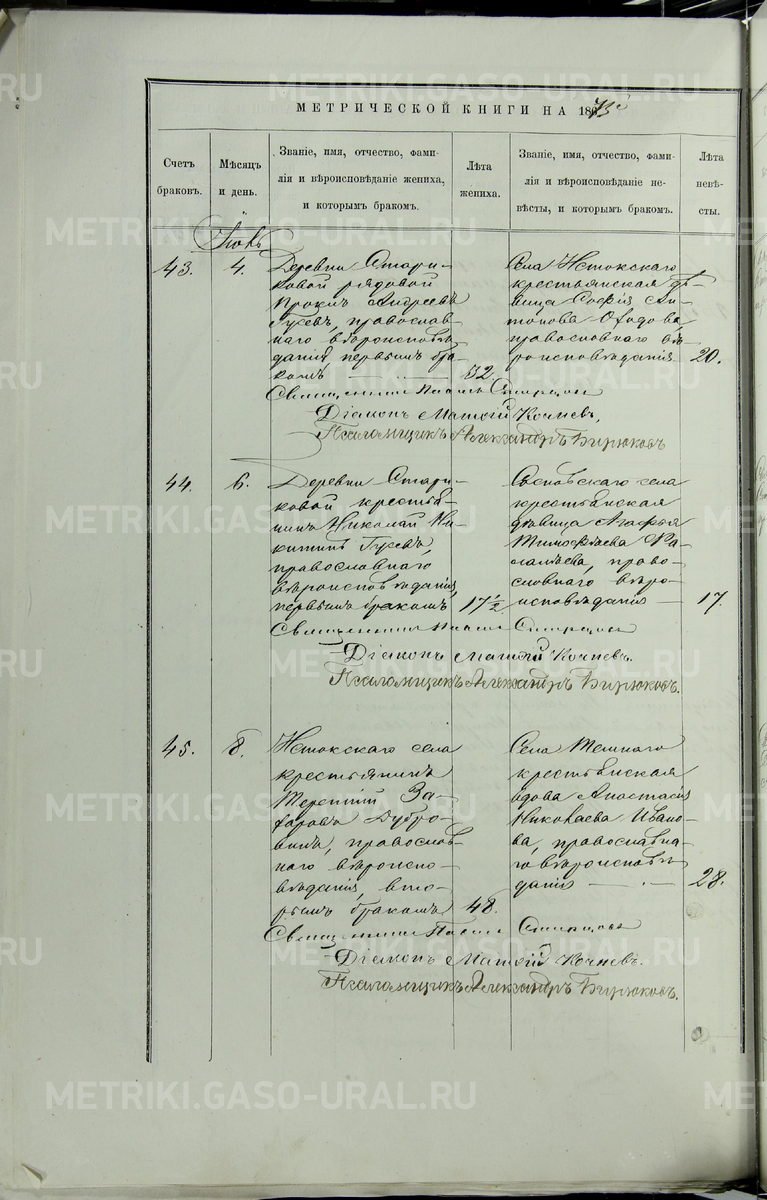 МЕТРИЧЕСКОЙ КНИГИ НА 1873й
Счетъ браковъ.
Мѣсяцъ и день.
Званіе, имя, отчество, фамилія и вѣроисповѣданіе жениха, и которымъ бракомъ.
Лѣта жениха.
Званіе, имя, отчество, фамилія и вѣроисповѣданіе невѣсты, и которымъ бракомъ.
Лѣта невѣсты.
43.
4.
Деревни Стари-
ковой рядовой
Проклъ Андреевъ
Гусевъ, православ-
наго вѣроисповѣ
данія, первымъ бра-
комъ
32.
Села Истокскаго
крестьянская дѣ-
вица Софія Ан-
тонова
православнаго вѣ-
роисповѣданія
20.
Священникъ
Діаконъ Матѳій Кочневъ,
Псаломщикъ Александръ Бирюковъ
44.
6.
Деревни Стари-
ковой крестья-
нинъ Николай Ни-
китинъ Гусевъ,
православнаго
вѣроисповѣданія,
первымъ бракомъ
17 1/2
Сосновскаго села
крестьянская
дѣвица Агафья
Тимофѣева
право-
славнаго вѣро-
исповѣданія
17.
Священникъ
Діаконъ Матѳій Кочневъ.
Псаломщикъ Александръ Бирюковъ.
45.
8.
Истокскаго села
крестьянинъ
Терентій За-
харовъ Дубро-
винъ, православ-
наго вѣроиспо-
вѣданія, вто-
рымъ бракомъ
48.
Села Темнаго
крестьянская
вдова Анастасія
Николаева Ивано-
ва, православна-
го вѣроисповѣ-
данія
28.
Священникъ
Діаконъ Матѳій Кочневъ.
Псаломщикъ Александръ Бирюковъ.
METRIKI.GASO-URAL.RU